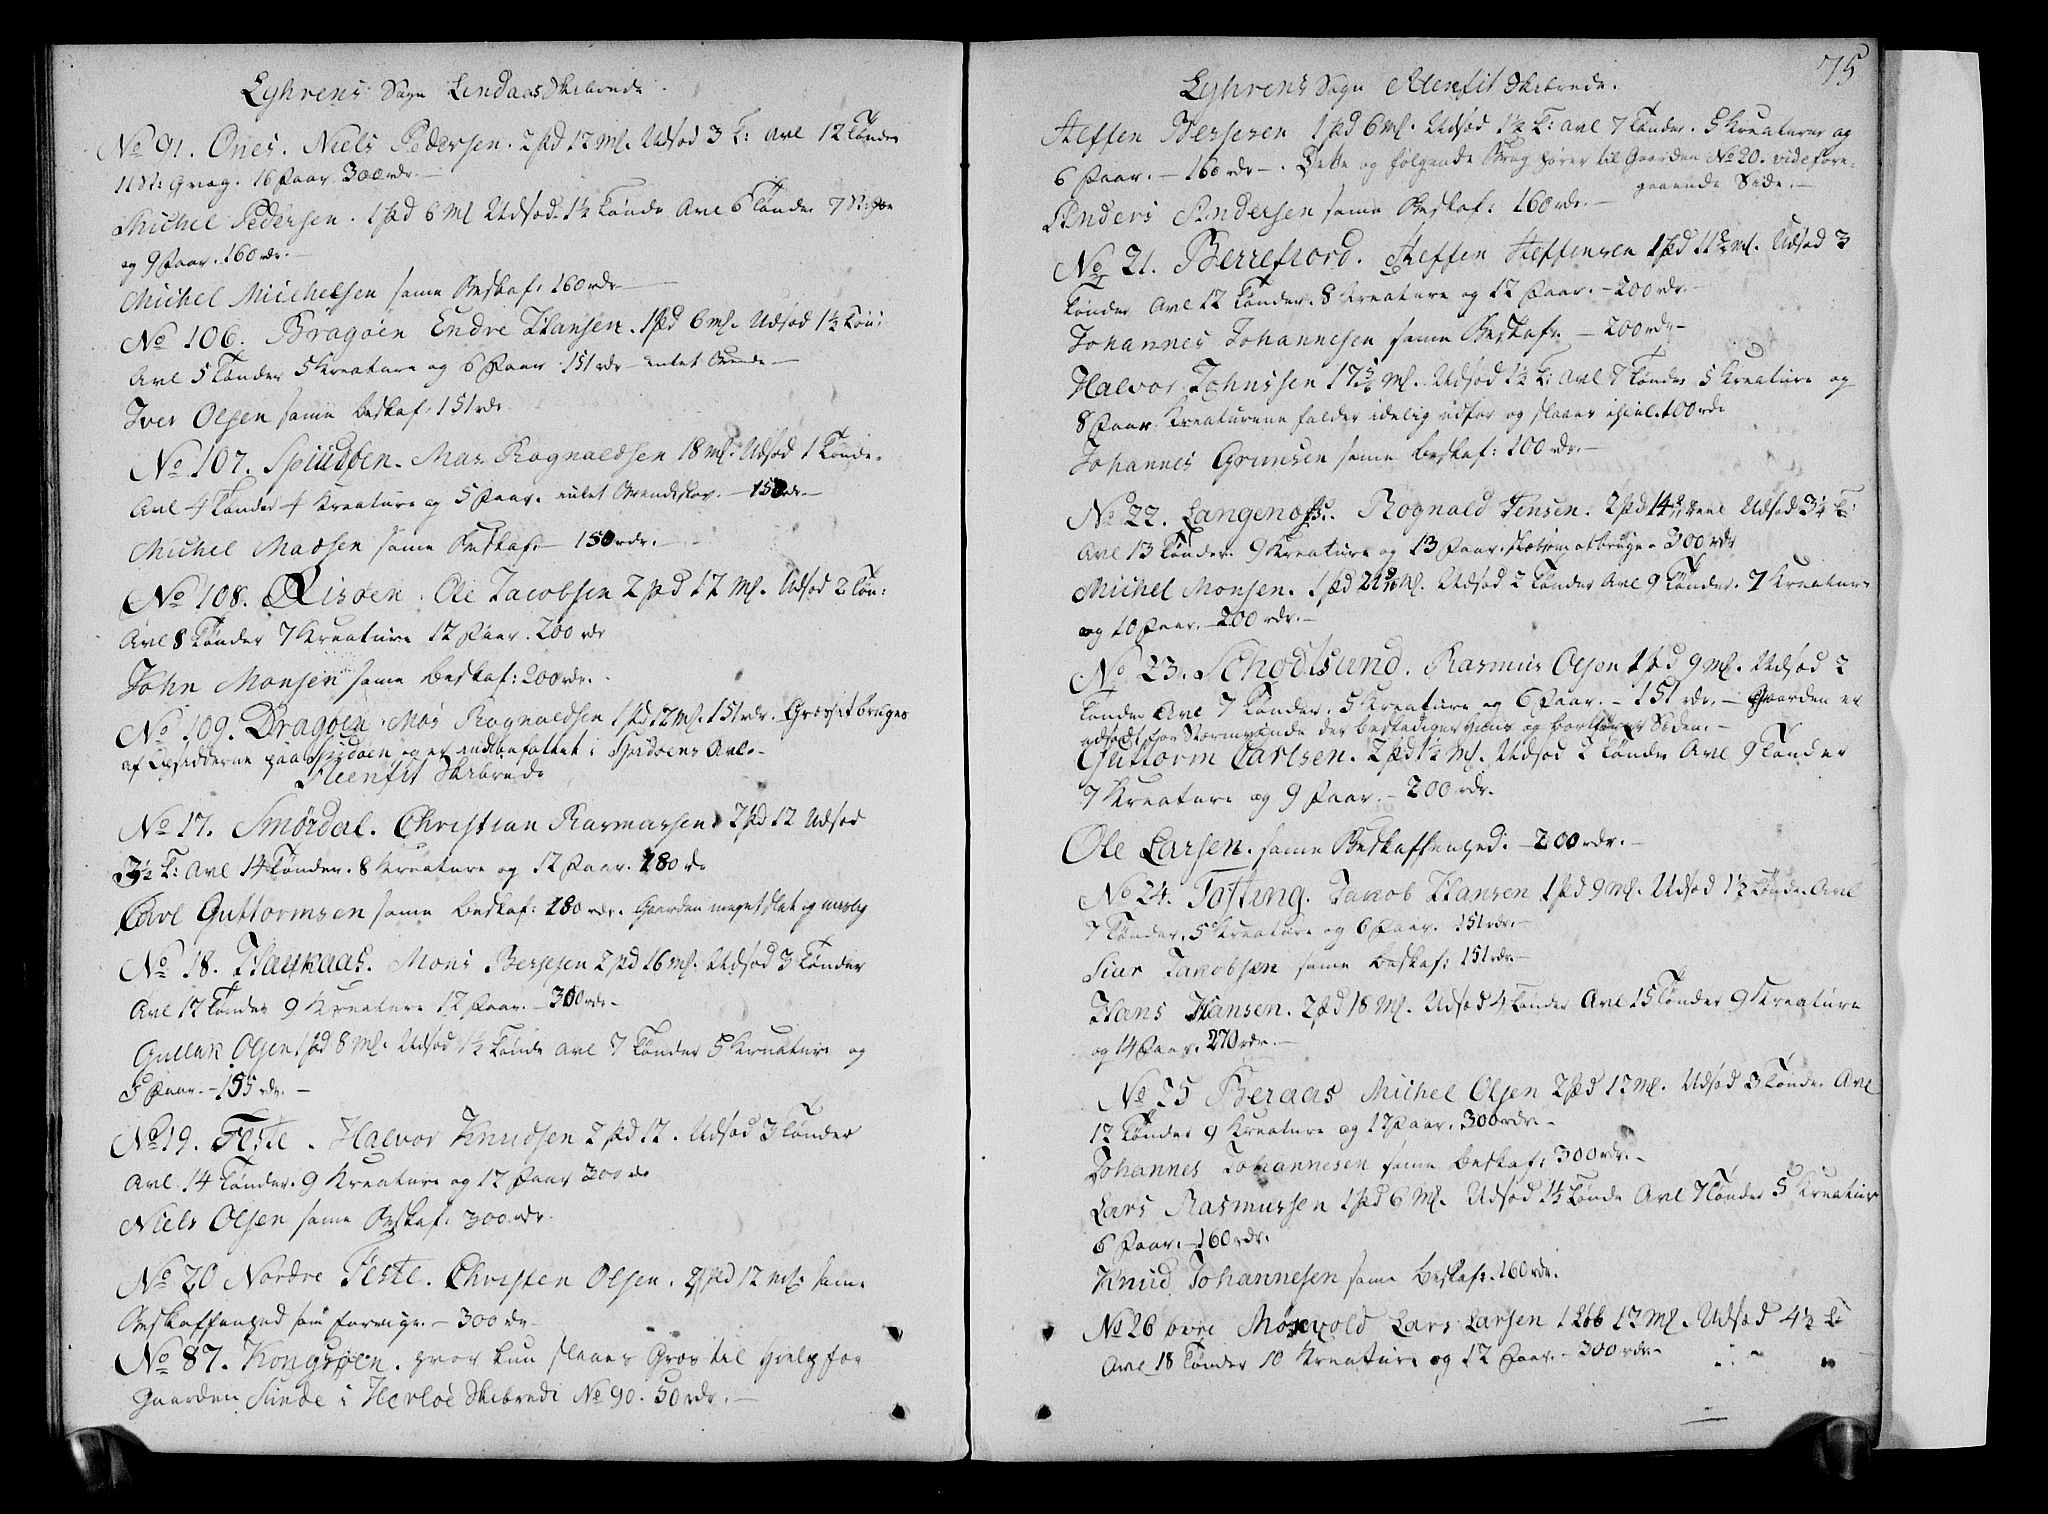 Lyhrens Sogn Lindaas Skibrede
No 91. Ones. Niels Pedersen. 2 pd 12 mk. Udsæd 3 T: Avl 12 Tønder
11 St: Qvæg. 16 Faar 300 rdr. —
Michel Pedersen. 1 pd 6 mk Udsæd 1½ Tønde Avl 6 Tønder 7
og 9 Faar. 160 rdr. —
Michel Michelsen same Beskaf: 160 rdr —
No 106. Bragøen Endre Hansen. 1 pd 6 mk. Udsæd 1½ Tøn:
Avl 5 Tønder 5 Kreature og 6 Faar 151 rdr — intet
Iver Olsen same beskaf: 151 rdr
No 107. Spiudøen. Mas Rognaldsen 18 mk. Udsæd 1 Tønde.
Avl 4 Tønder 4 Kreature og 5 Faar. intet Brendeskov. — 150 rdr. —
Michel Madsen same Beskaf. — 150 rdr. —
No 108. Risøen. Ole Jacobsen 2 pd 12 mk. Udsæd 2 Tøn:
Avl 8 Tønder 7 Kreature 12 Faar. 200 rdr
John Monsen same beskaf: 200 rdr.
No 109. Dragøen. Mos Rognaldsen 1 pd 12 mk. 151 rdr. Græsset bruges
af Opsidderne paa Spidøen og er indbefattet i Spidøens Avl. —
Alenfit Skibrede
No 17. Smørdal. Christian Rasmussen 2 pd 12 Udsæd
3½ T: Avl 14 Tønder. 8 Kreature og 12 Faar. 180 rdr
Carl Guttormsen same beskaf: 180 rdr. Gaarden meget slet og
No 18. Haukaas. Mons Bersesen 2 pd 16 mk. Udsæd 3 Tønder
Avl 12 Tønder 9 Kreature 12 Faar. — 300 rdr. —
Gullak Olsen 1 pd 8 mk. Udsæd 1½ Tønde Avl 7 Tønder 5 Kreature og
5 Faar. — 155 rdr. —
No 19. Feste. Halvor Knudsen 2 pd 12. Udsæd 3 Tønder
Avl 14 Tønder. 9 Kreature og 12 Faar 300 rdr
Niels Olsen same Beskaf: 300 rdr.
No 20 Nordre Feste. Christen Olsen. 2 pd 12 mk: same
Beskaffenhed som forrige. — 300 rdr.
No 87. Kongsøen. hvor kun slaaes Græs til Hielp for
Gaarden Sunde i Herløe Skibrede No 90. 50 rdr. —
75
Lyhrens Sogn Alenfit Skibrede.
Steffen Bersesen 1 pd 6 mk. Udsæd 1½ T: Avl 7 Tønder. 5 Kreaturer og
6 Faar. — 160 rdr —. Dette og følgende Brug hører til Gaarden No 20. vide fore-
gaaende Side. —
Anders Andersen same Beskaf: 160 rdr. —
No 21. Berrefiord. Steffen Steffensen 1 pd 11 mk. Udsæd 3
Tønder Avl 12 Tønder. 8 Kreature og 12 Faar. — 200 rdr. —
Johannes Johannesen same Beskaf: — 200 rdr —
Halvor Johnssen 17 mk. Udsæd 1½ T: Avl 7 Tønder 5 Kreature og
8 Faar. Kreaturene falder idelig udfor og slaaer ihiel. 100 rdr
Johannes Grunsen same beskaf: 100 rdr. —
No 22. Langenæs. Rognald Jensen. 2 pd 14 mk Udsæd 3¼ T:
Avl 13 Tønder. 9 Kreature og 13 Faar. 300 rdr
Michel Monsen. 1 pd mk. Udsæd 2 Tønder Avl 9 Tønder. 7 Kreature
og 10 Faar. — 200 rdr. —
No 23. Schodtsund. Rasmus Olsen 1 pd 9 mk. Udsæd 2
Tønder Avl 7 Tønder. 5 Kreature og 6 Faar. — 151 rdr. — Gaarden er
udsadt for Stormvinde der beskadiger Huus og bortfører Sæden. —
Guttorm Carlsen. 2 pd 1½ mk. Udsæd 2 Tønder Avl 9 Tønder
7 Kreature og 9 Faar. — 200 rdr.
Ole Larsen. same Beskaffenhed. — 200 rdr. —
No 24. Tofting. Jacob Hansen 1 pd 9 mk. Udsæd 1½ Tønde. Avl
7 Tønder. 5 Kreature og 6 Faar. 151 rdr. —
Siur Jacobsen same beskaf: 151 rdr —
Hans Hansen. 2 pd 18 mk. Udsæd 4 Tønder Avl 15 Tønder 9 Kreature
og 14 Faar. 270 rdr. —
No 25 Beraas Michel Olsen 2 pd 12 mk. Udsæd 3 Tønder Avl
12 Tønder 9 Kreature og 12 Faar. 300 rdr. —
Johannes Johannesen same beskaf: 300 rdr. —
Lars Rasmussen 1 pd 6 mk. Udsæd 1½ Tønde Avl 7 Tønder 5 Kreatur
6 Faar. — 160 rdr.
Knud Johannesen same beskaf. 160 rdr.
No 26 øvre Møxvold Lars Larsen 1 Løb 12 mk. Udsæd 4½ T:
Avl 18 Tønder 10 Kreature og 12 Faar. — 300 rdr. —